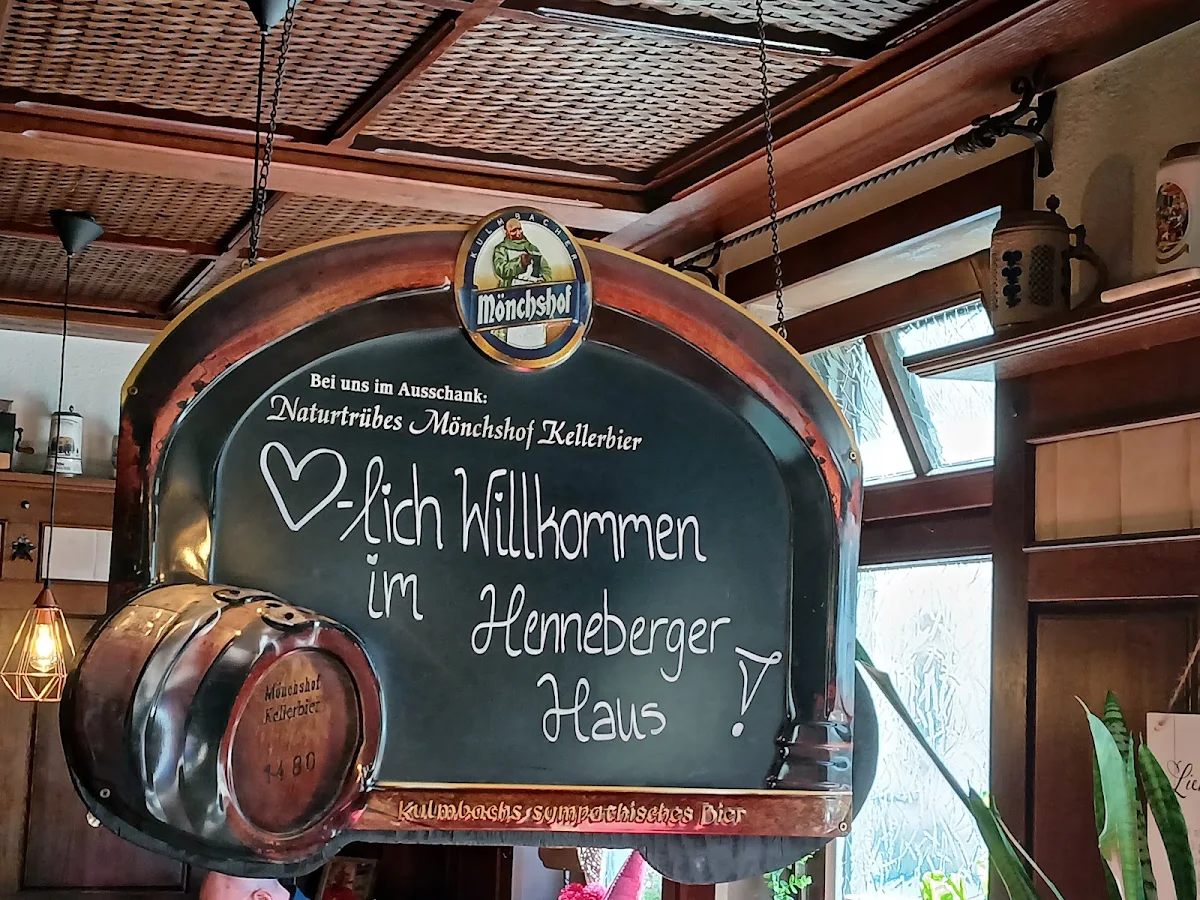 KULMBACHER
Mönchshof
Bei uns im Ausschank:
Naturtrübes Mönchshof Kellerbier
♡-lich Willkommen
im
Henneberger
Haus!
Mönchshof
Kellerbier
1480
Kulmbachs sympathisches Bier